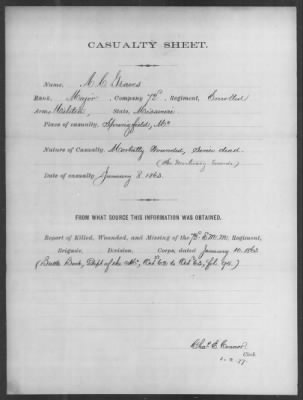 CASUALTY SHEET.
Name, A. C. Graves
Rank, Major, Company 7", Regiment, Enrolled
Arm, Militia, State, Missouri
Place of casualty, Springfield, Mo
Nature of Casualty, Mortally Wounded, Since dead
Date of casualty January 8. 1863.
FROM WHAT SOURCE THIS INFORMATION WAS OBTAINED.
Report of Killed, Wounded, and Missing of the 7" E. M. M. Regiment,
Brigade, Division, Corps, dated January 10. 1863
(Battle Book, Dept of the Mo,
Clerk.